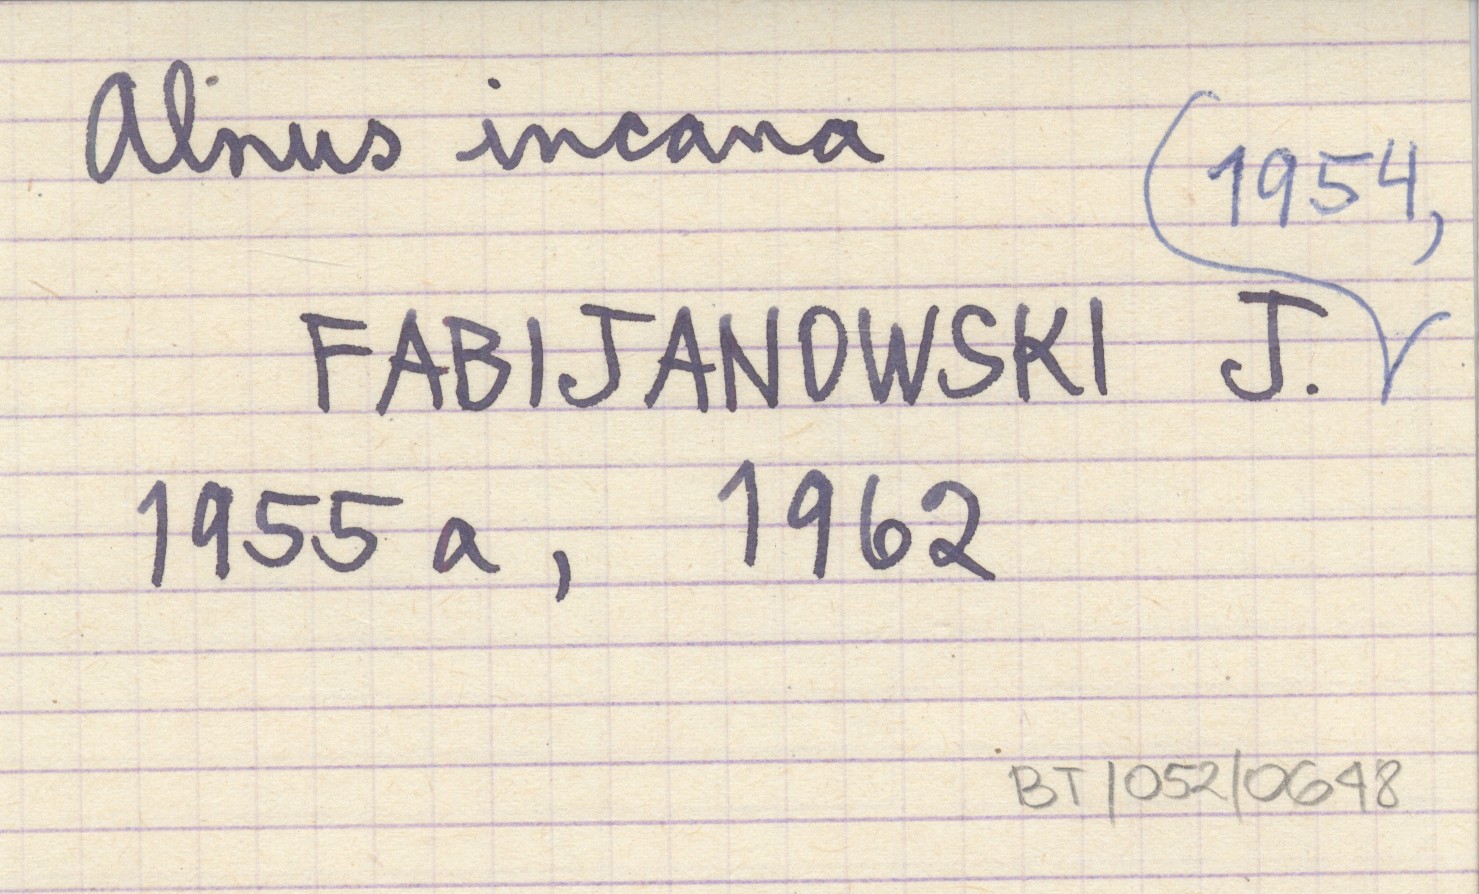 Alnus incana
1954,
FABIJANOWSKI J.
1955 a, 1962
BT/052/0648